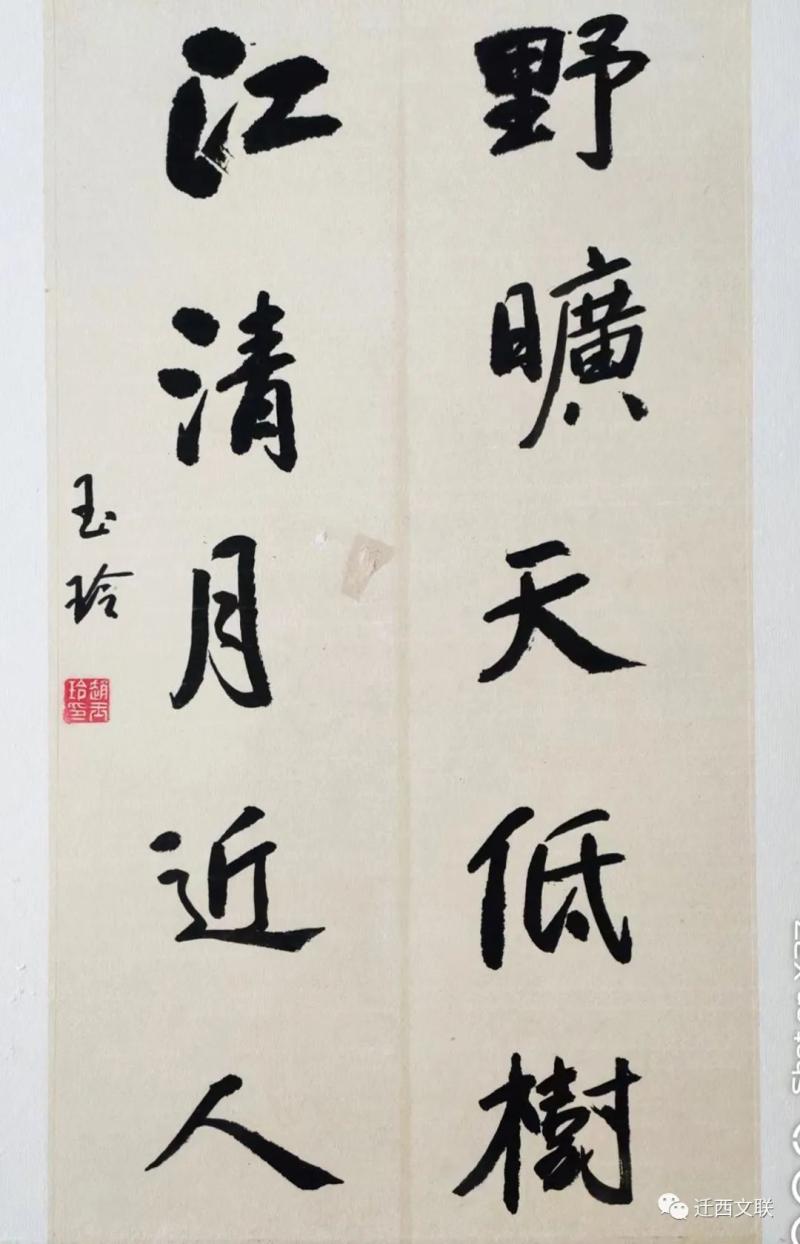 野曠天低樹
江清月近人
玉玲
趙玉玲印
迁西文联
Shot on X27